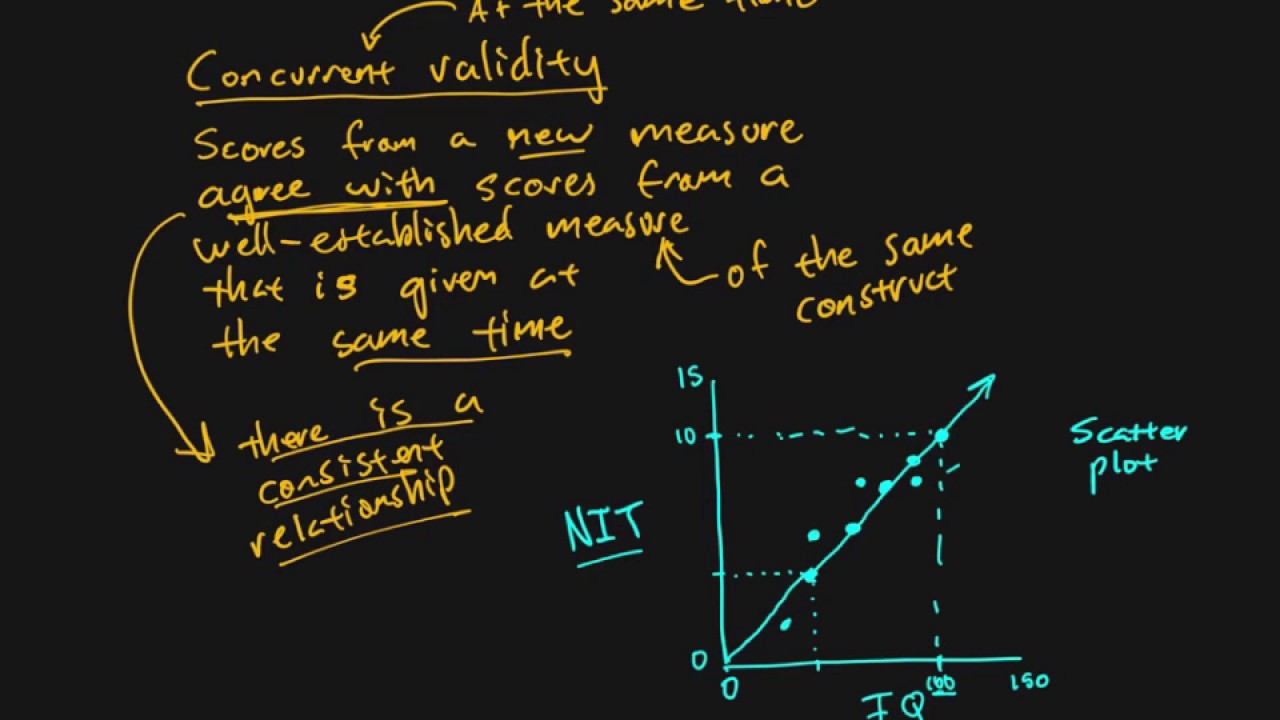 At the same time
Concurrent validity
Scores from a new measure
agree with scores from a
well-established measure
that is given at
the same time
of the same
construct
there is a
consistent
relationship
15
10
NIT
0
0
IQ
100
150
Scatter
plot